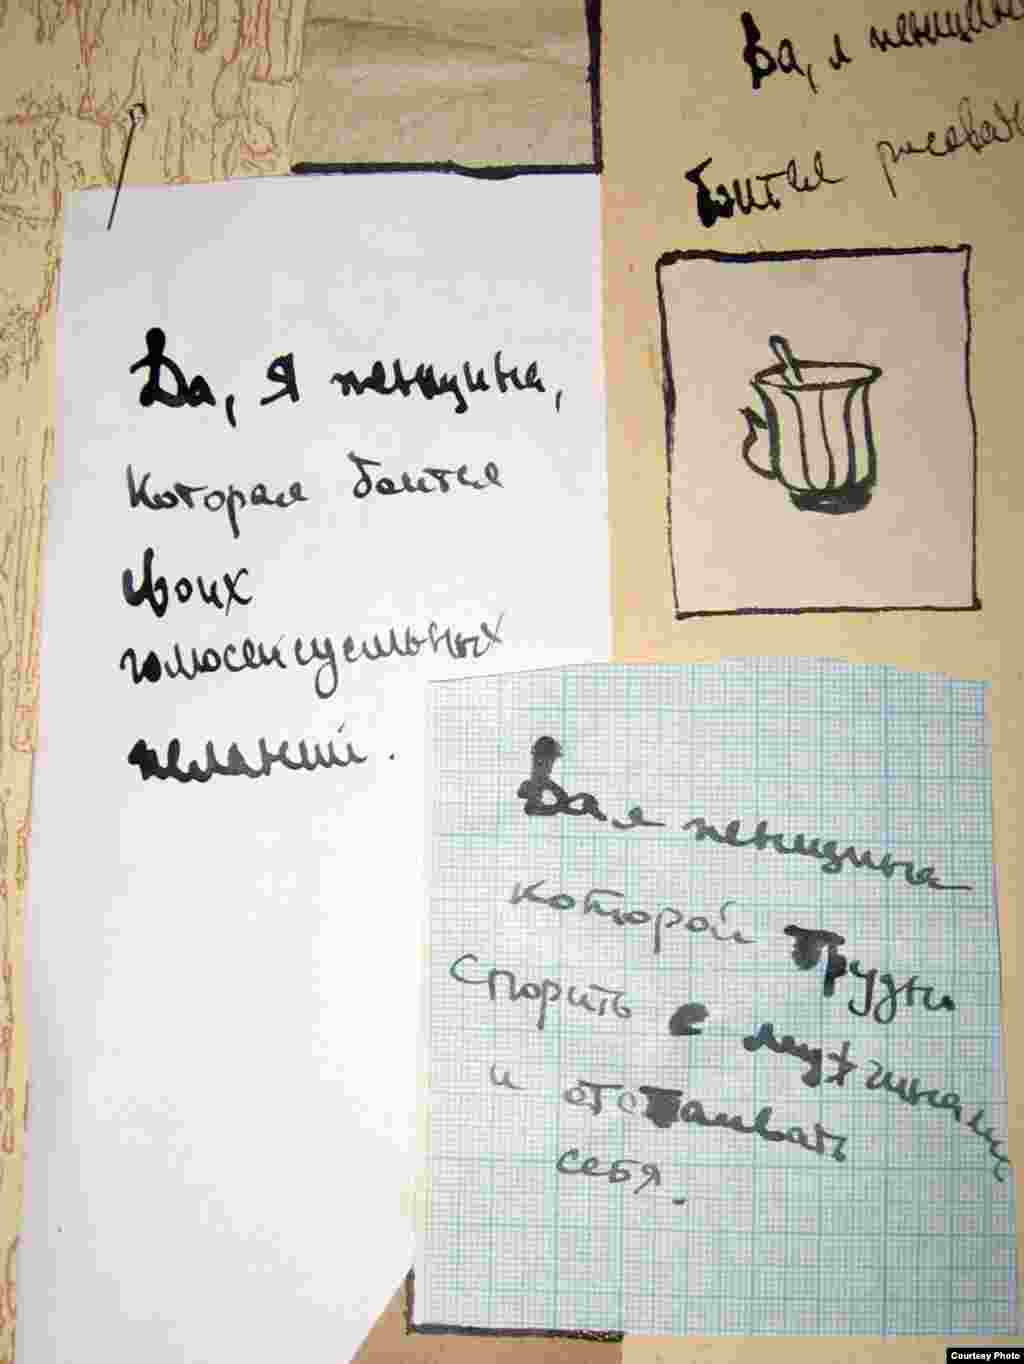 Да, я женщин
боится рисоват
Да, я женщина,
которая боится
своих
гомосексуальных
желаний.
Да я женщина
которой трудно
спорить с мужчинами
и отстаивать
себя.
Courtesy Photo